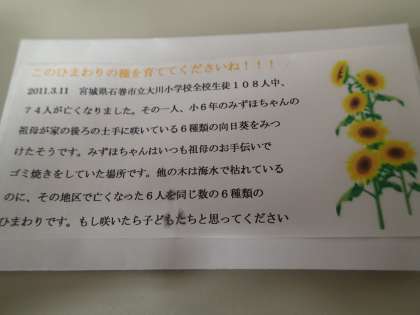 このひまわりの種を育ててくださいね！！！
2011.3.11　宮城県石巻市立大川小学校全校生徒１０８人中、
７４人が亡くなりました。その一人、小６年のみずほちゃんの
祖母が家の後ろの土手に咲いている６種類の向日葵をみつ
けたそうです。みずほちゃんはいつも祖母のお手伝いで
ゴミ焼きをしていた場所です。他の木は海水で枯れている
のに、その地区で亡くなった６人を同じ数の６種類の
ひまわりです。もし咲いたら子どもたちと思ってください